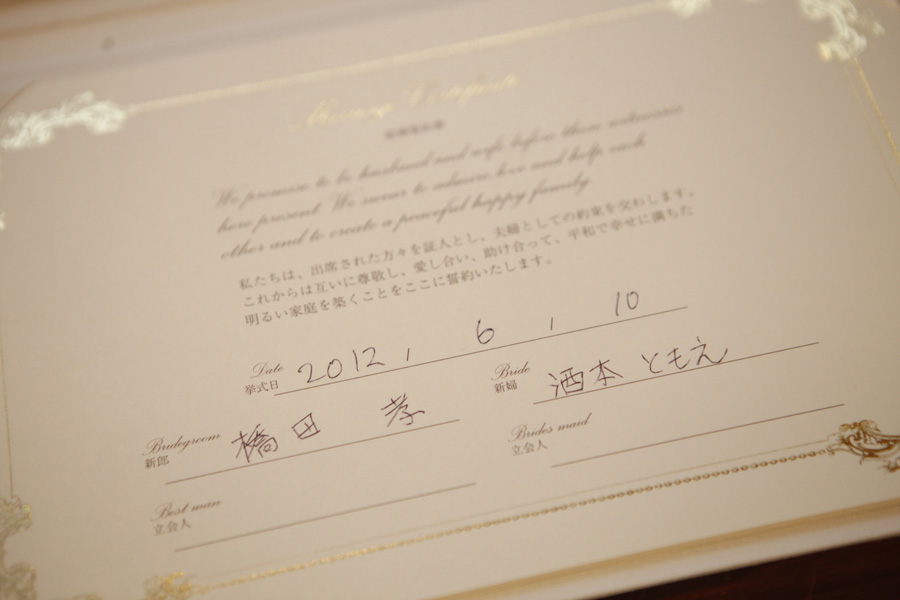 Marriage Certificate
We promise to be husband and wife before those witnesses
here present. We swear to admire love and help each
other and to create a peaceful happy family.
私たちは、出席された方々を証人とし、夫婦としての約束を交わします。
これからは互いに尊敬し、愛し合い、助け合って、平和で幸せに満ちた
明るい家庭を築くことをここに誓約いたします。
Date 2012, 6, 10
挙式日
Bridegroom 橋田 孝
新郎
Bride 酒本 ともえ
新婦
Best man
立会人
Brides maid
立会人